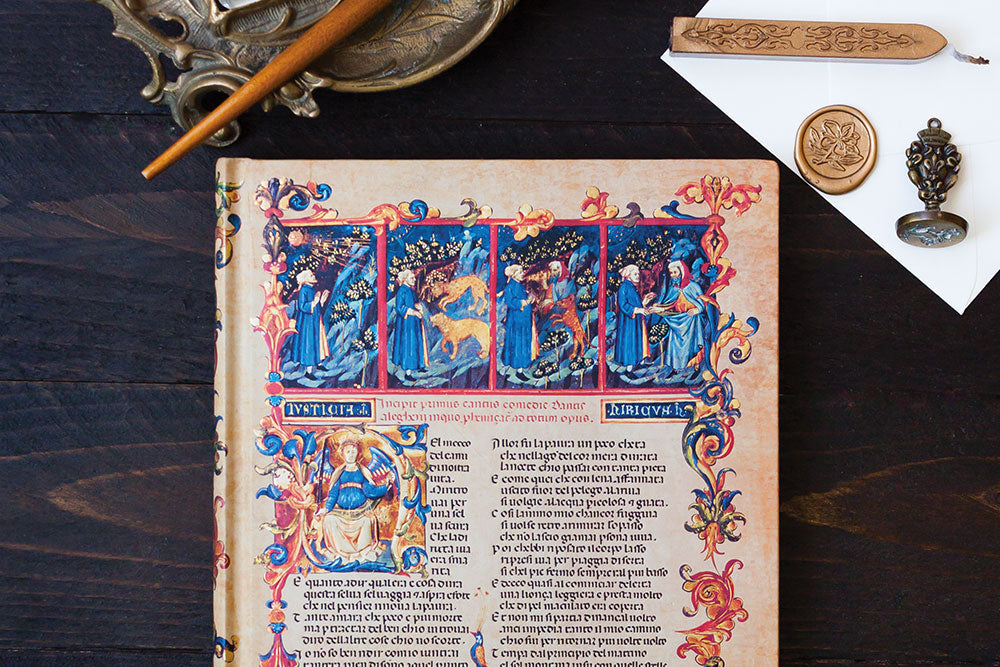 IVSTICIA
Incipit primus cantus comedie Dantis
alegherii inquo ad totum opus.
El mecco
del cami
di nostra
vita.
Mi ritro
uai per
una sel
va scura
Che la di
ritta via
era sma
rita
E quanto adir qual era e cosa dura
questa selva selvaggia & aspra e forte
che nel pensier rinova la paura.
T ante amara che poco e piu morte
ma p tractar del ben chio vi trovai
diro dellaltre cose chio no scorte.
I o no so ben ridir como vi intrai
tantera pien disono aquel punto
A llor fu la paura un poco cheta
che nellago del cor mera durata
la nocte chio passai con tanta pieta
E come quei che con lena affannata
uscito fuor del pelago alariva
si volge alacqua picolosa & guata.
C osi lanimo mio chancor fuggiva
si volse retro arimirar lo passo
che no lascio giamai psona viva.
P oi chebbi riposato il corpo lasso
ripresi via per piaggia diserta
si chel pie fermo sempre era l piu basso
E t ecco quasi al cominciar delerta
una lionça leggiera e presta molto
che di pel maculato era coperta
E t non mi si partia dinançi al volto
anci impedia tanto il mio camino
chio fui per ritornar piu volte volto
T empo dal principio del matino
el sol montava su con quelle stelle